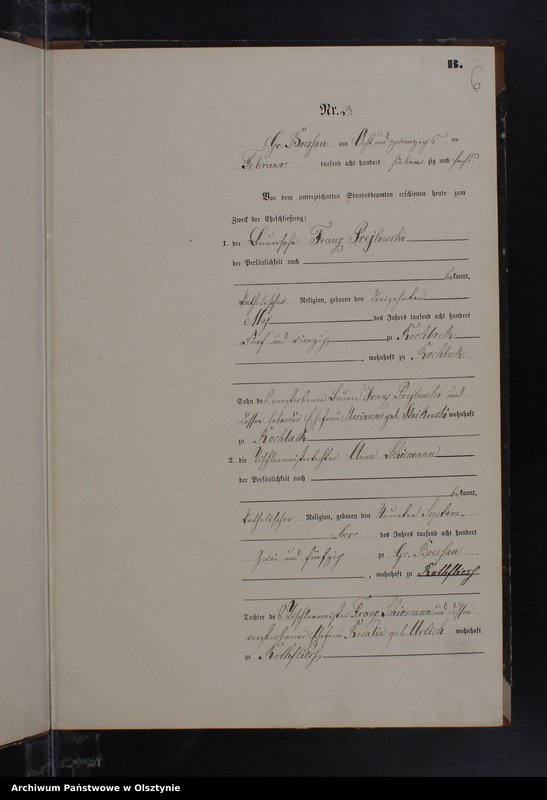 B.
6
Nr. 3.
Gr. Bössau am Acht und zwanzigsten
Februar tausend acht hundert sieben zig und sechs.
Vor dem unterzeichneten Standesbeamten erschienen heute zum
Zweck der Eheschließung:
1. der Bauersohn Franz Prejlowski
der Persönlichkeit nach
bekannt,
katholischer Religion, geboren den dreizehnten
Maj des Jahres tausend acht hundert
fünf und vierzig zu Kochlack
, wohnhaft zu Kochlack
Sohn des verstorbenen Bauern Franz Prejlowski und
dessen Ehefrau Marianna geb. wohnhaft
zu Kochlack
2. die Tischlermeistertochter Anna Thiemann
der Persönlichkeit nach
bekannt,
katholischer Religion, geboren den Neunten Septem-
ber des Jahres tausend acht hundert
Zwei und fünfzig zu Gr. Boessau
, wohnhaft zu Rothfliess
Tochter des Tischlermeister Franz Thiemann und dessen
verstorbener Ehefrau Rosalia geb. Urlich wohnhaft
zu Rothfliess
Archiwum Państwowe w Olsztynie